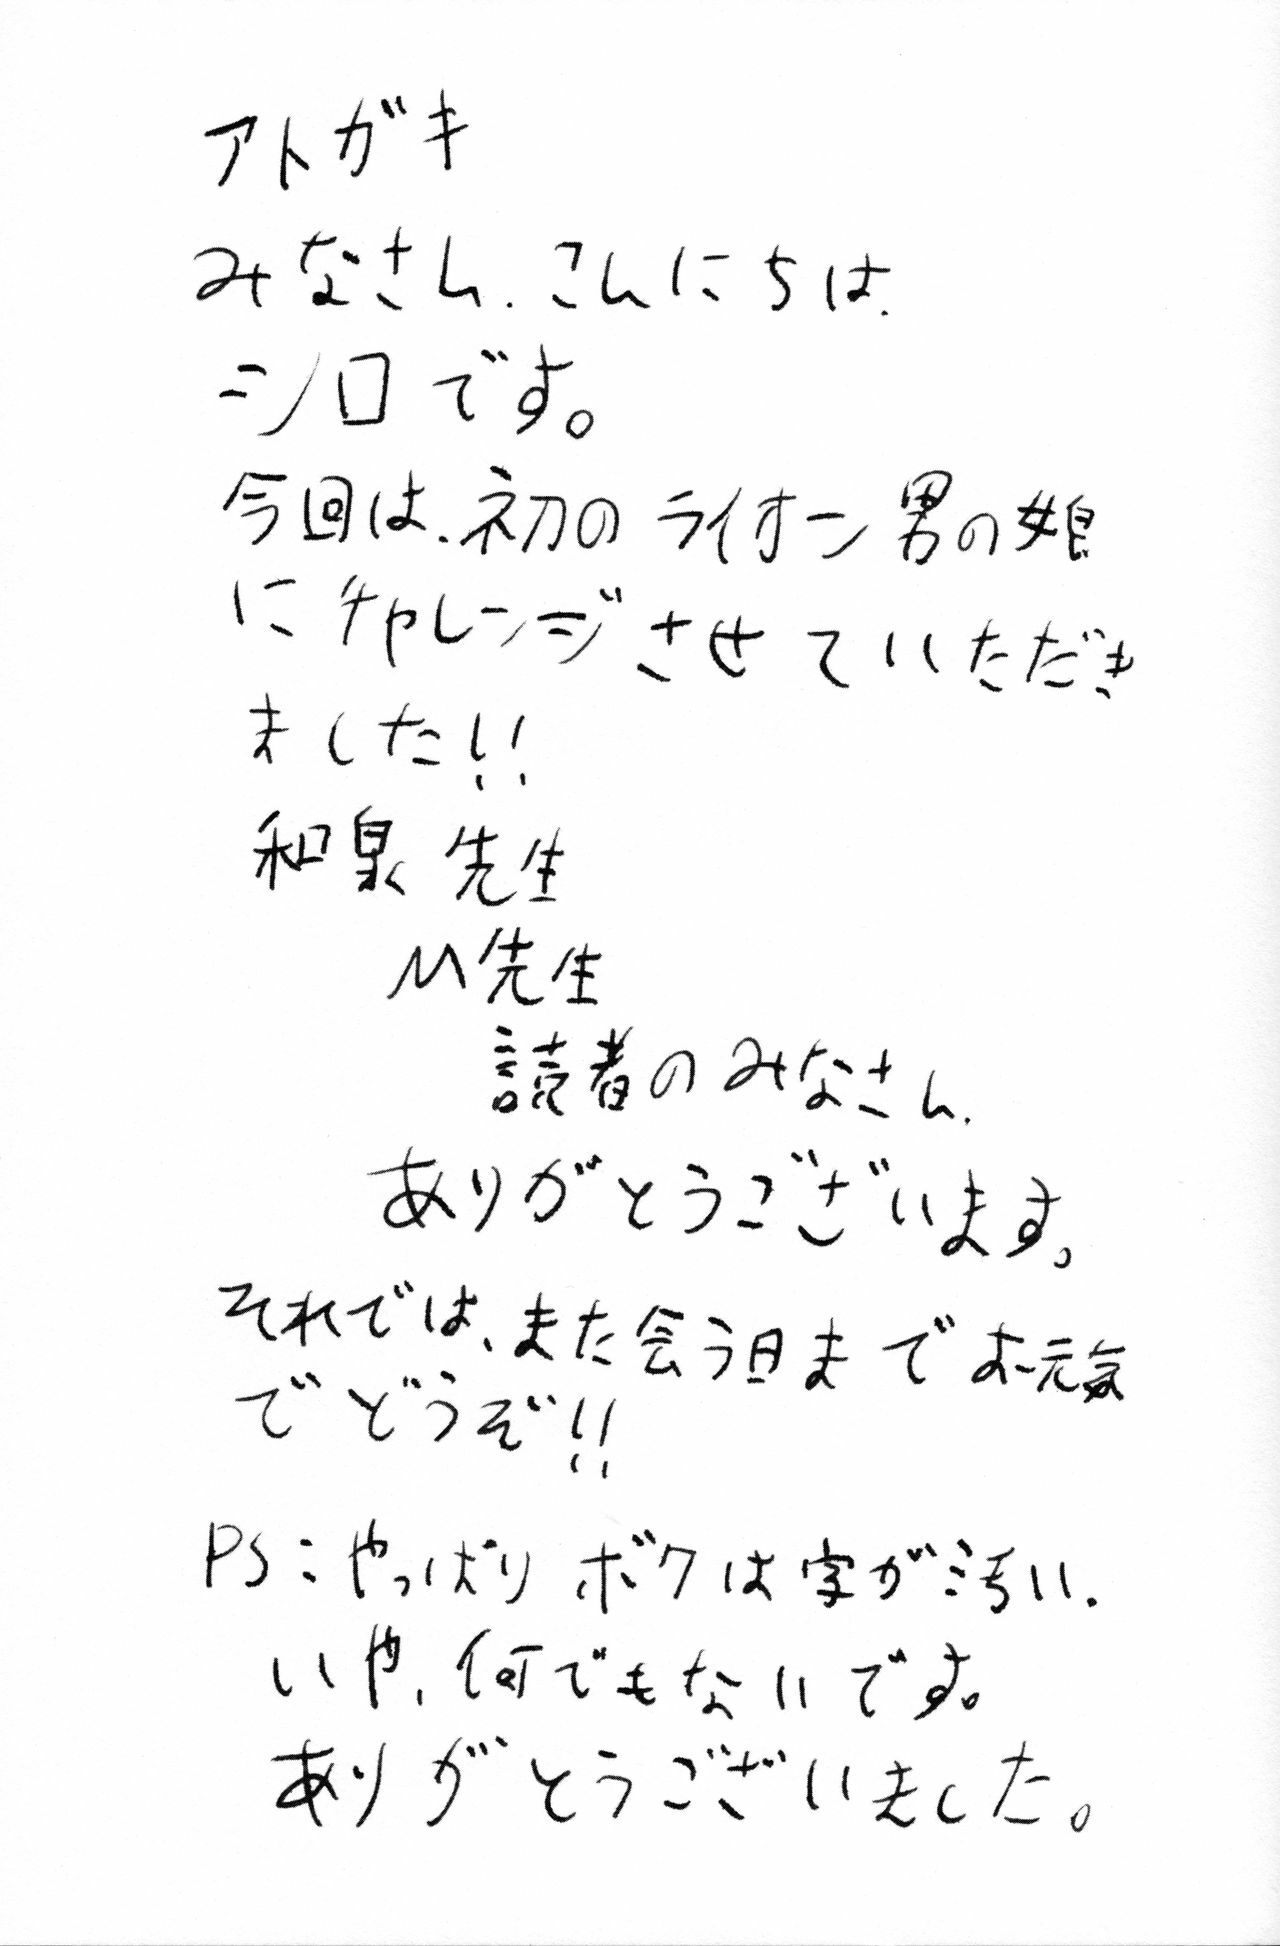 アトガキ
みなさん、こんにちは、
シロです。
今回は、初のライオン男の娘
にチャレンジさせていただき
ました!!
和泉先生
M先生
読者のみなさん、
ありがとうございます。
それでは、また会う日までお元気
でどうぞ!!
PS:やっぱりボクは字が汚い、
いや、何でもないです。
ありがとうございました。